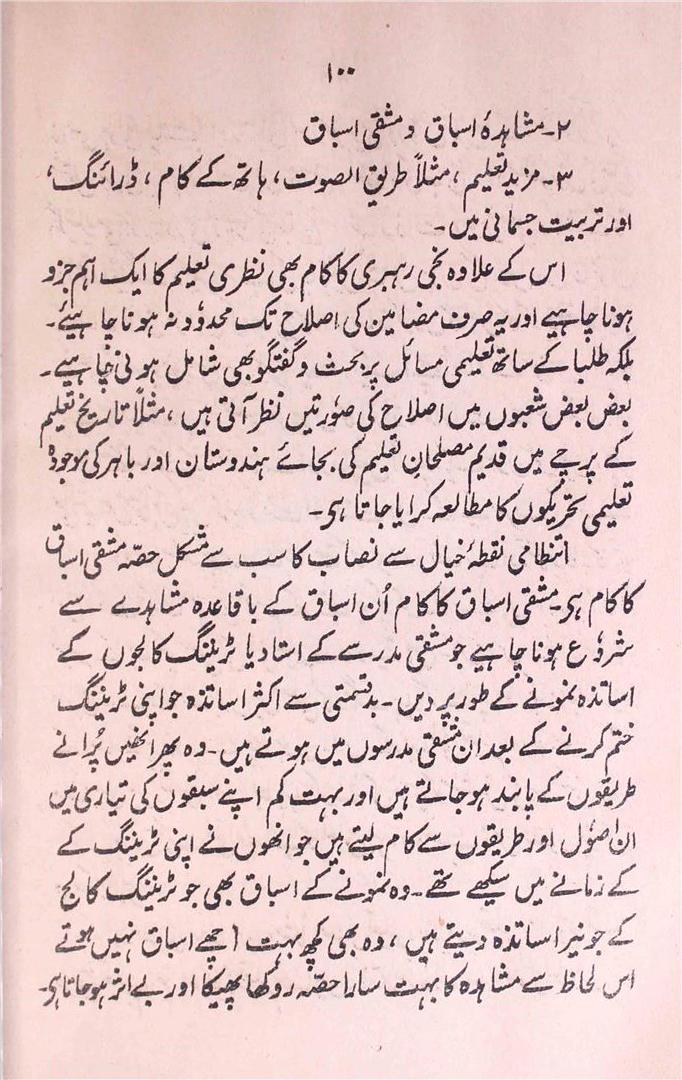 ۱۰۰
۲۔ مشاہدۂ اسباق و مشقی اسباق
۳۔ مزید تعلیم، مثلاً طریق الصوت، ہاتھ کے کام، ڈرائنگ،
اور تربیت جسمانی میں۔
اس کے علاوہ نجی رہبری کا کام بھی نظری تعلیم کا ایک اہم جزو
ہونا چاہیے اور یہ صرف مضامین کی اِصلاح تک محدود نہ ہونا چاہیئے۔
بلکہ طلبا کے ساتھ تعلیمی مسائل پر بحث و گفتگو بھی شامل ہونی چاہیے۔
بعض بعض شعبوں میں اصلاح کی صورتیں نظر آتی ہیں، مثلاً تاریخ تعلیم
کے پرچے میں قدیم مصلحانِ تعلیم کی بجائے ہندوستان اور باہر کی موجودہ
تعلیمی تحریکوں کا مطالعہ کرایا جاتا ہی۔
انتظامی نقطۂ خیال سے نصاب کا سب سے مشکل حصّہ مشقی اسباق
کا کام ہی۔ مشقی اسباق کا کام اُن اسباق کے باقاعدہ مشاہدے سے
شروع ہونا چاہیے جو مشقی مدرسے کے استاد یا ٹریننگ کالجوں کے
اساتذہ نمونے کے طور پر دیں۔ بدقسمتی سے اکثر اساتذہ جو اپنی ٹریننگ
ختم کرنے کے بعد ان مشقی مدرسوں میں ہوتے ہیں۔ وہ پھر انھیں پُرانے
طریقوں کے پابند ہو جاتے ہیں اور بہت کم اپنے سبقوں کی تیاری میں
ان اصول اور طریقوں سے کام لیتے ہیں جو انھوں نے اپنی ٹریننگ کے
کے زمانے میں سیکھے تھے۔ وہ نمونے کے اسباق بھی جو ٹریننگ کالج
کے جونیر اساتذہ دیتے ہیں، وہ بھی کچھ بہت اچھے اسباق نہیں ہوتے
اس لحاظ سے مشاہدہ کا بہت سارا حصّہ روکھا پھیکا اور بے اثر ہو جاتا ہی۔